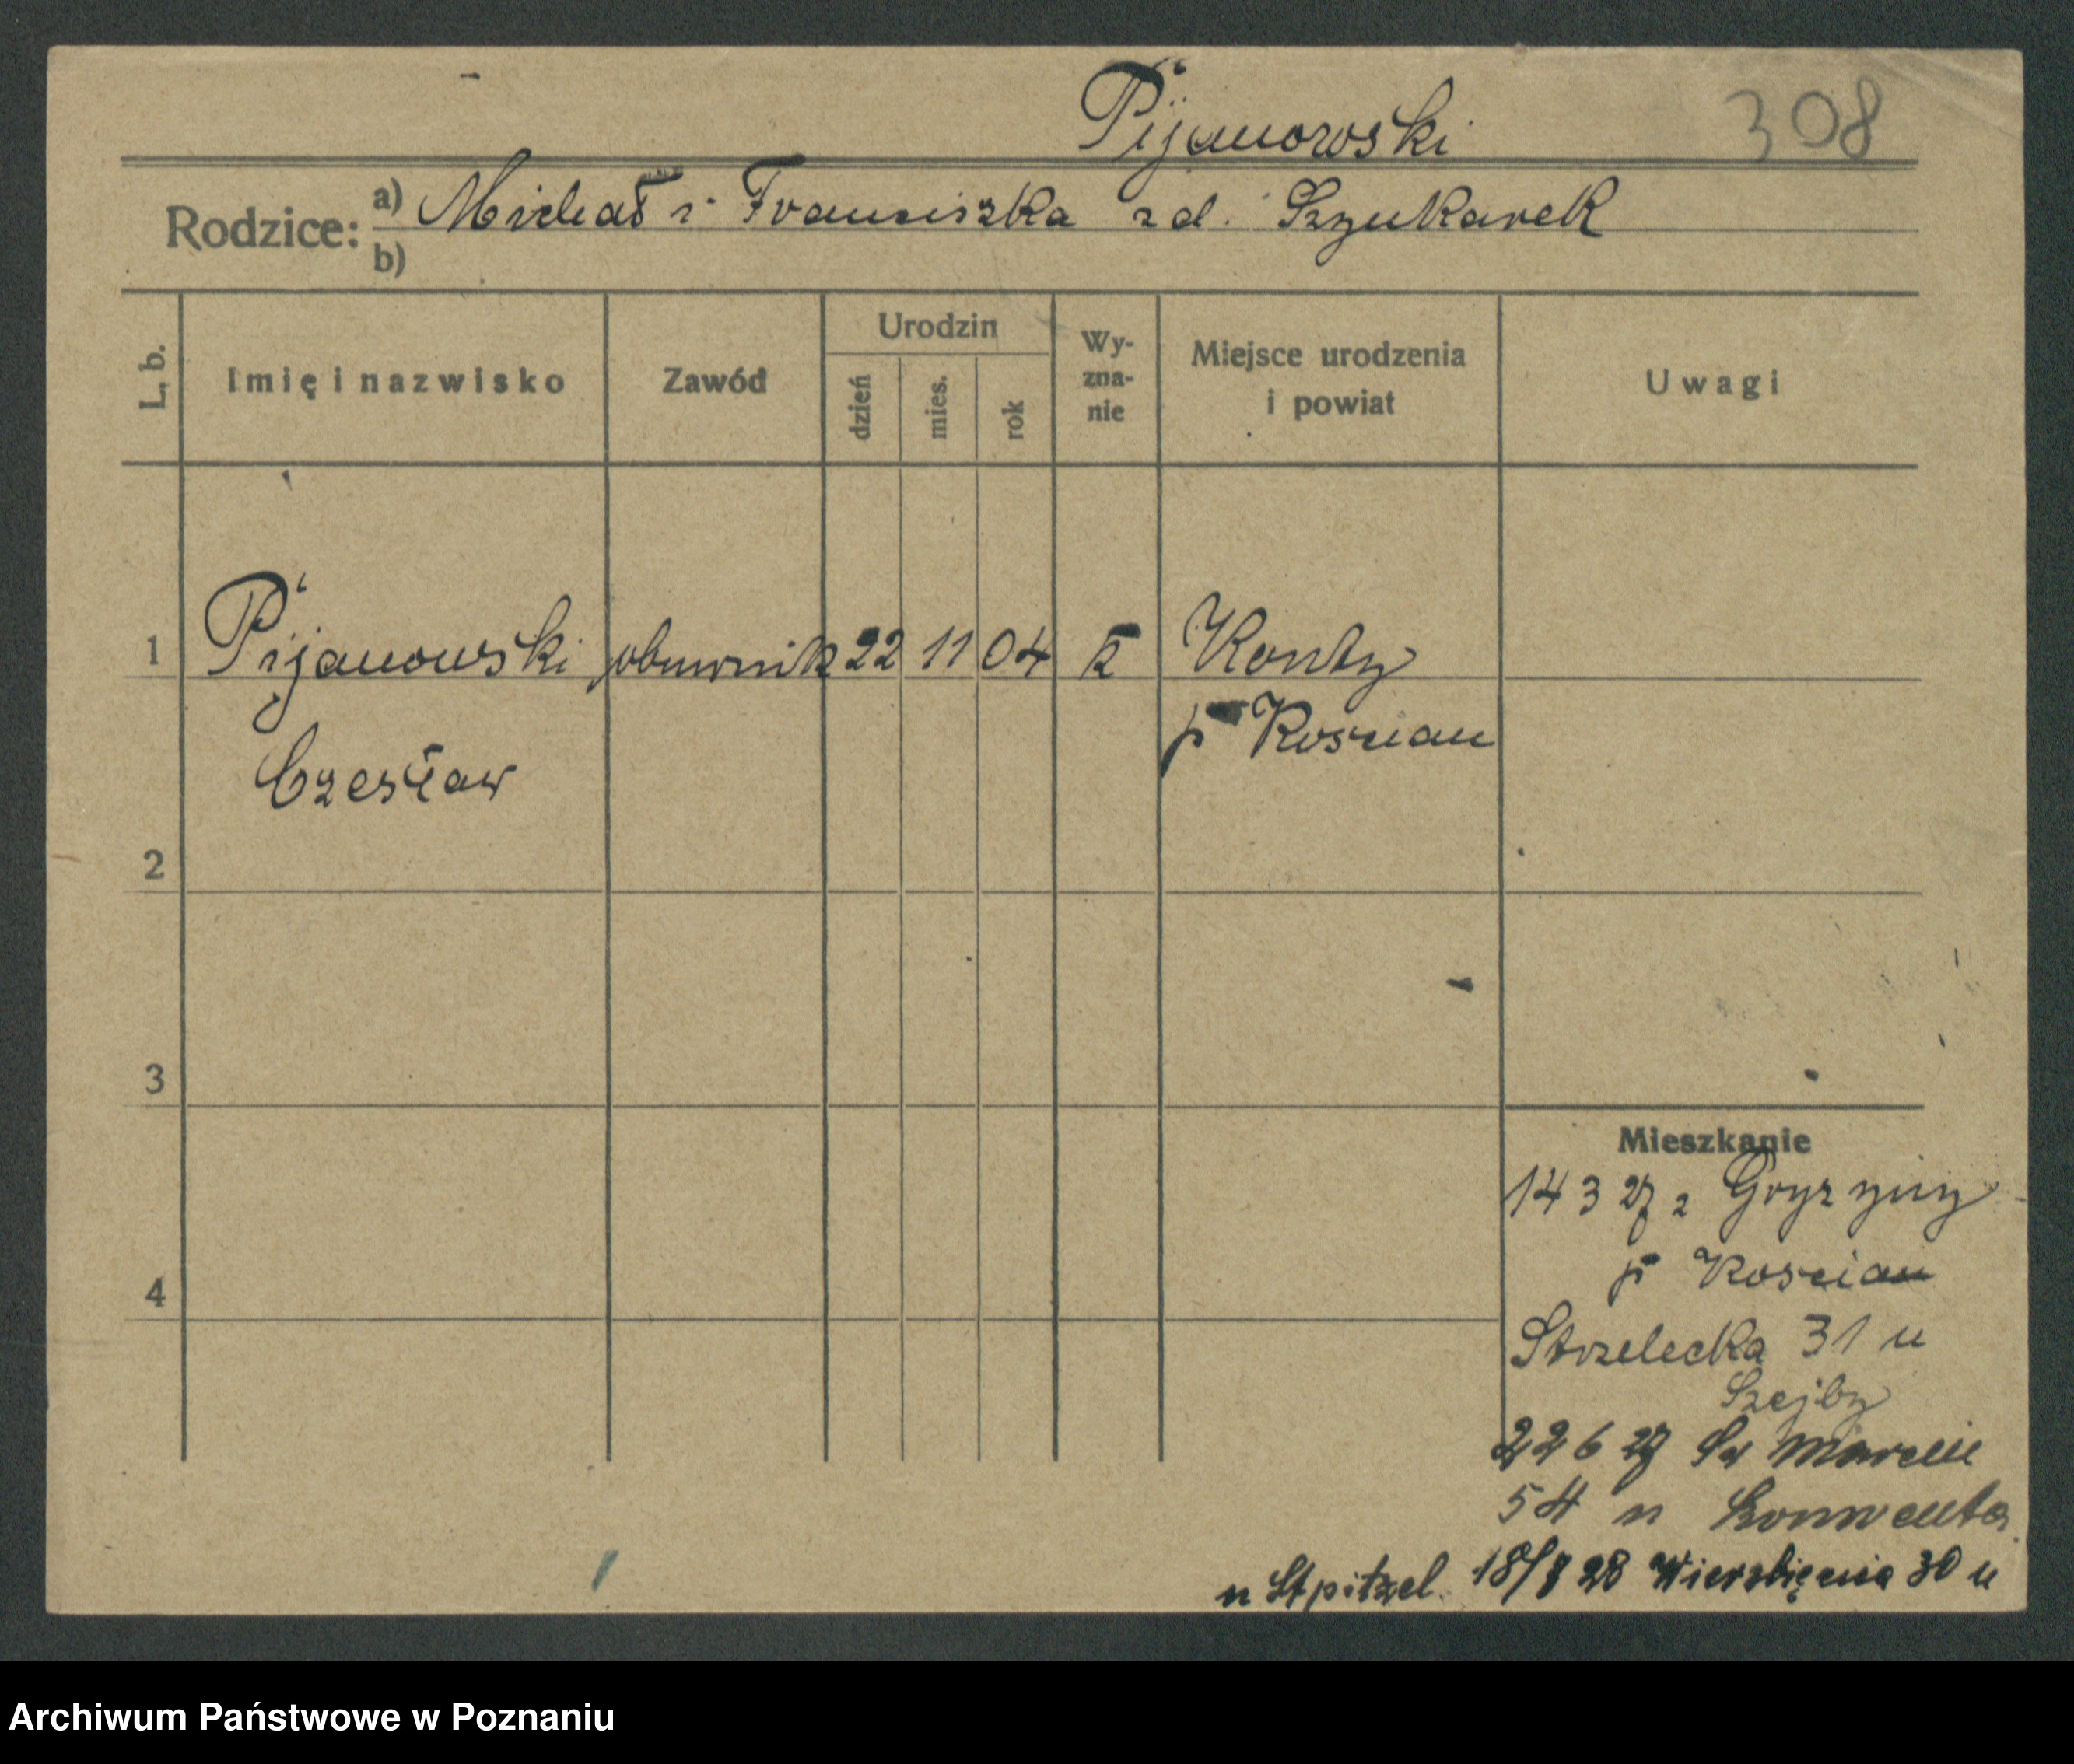 Pijanowski 308
Rodzice: a) Michał i Franciszka zd. Szyukarek
b)
L. b. Imię i nazwisko Zawód Urodzin dzień mies. rok Wy-zna-nie Miejsce urodzenia i powiat Uwagi
1 Pijanowski obuwnik 22 11 04 k Konty
p Koscian
Czesław
2
3
4
Mieszkanie
14 3 27 z Gryzyny
p Koscian
Strzelecka 31 u
Szejby
22 6 27 Sw Marcin
54 u
18/7 28 Wierzbięcia 30 u
u Stpitzel.
Archiwum Państwowe w Poznaniu